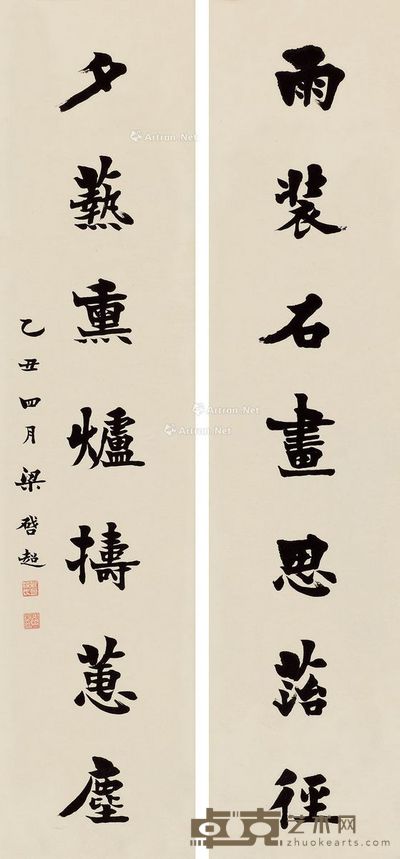 雨裝石畫思菭徑
夕爇熏爐擣蕙塵
乙丑四月梁啓超
Artron.Net
Artron.Net
Artron.Net
Artron.Net
卓克艺术网
zhuokearts.com